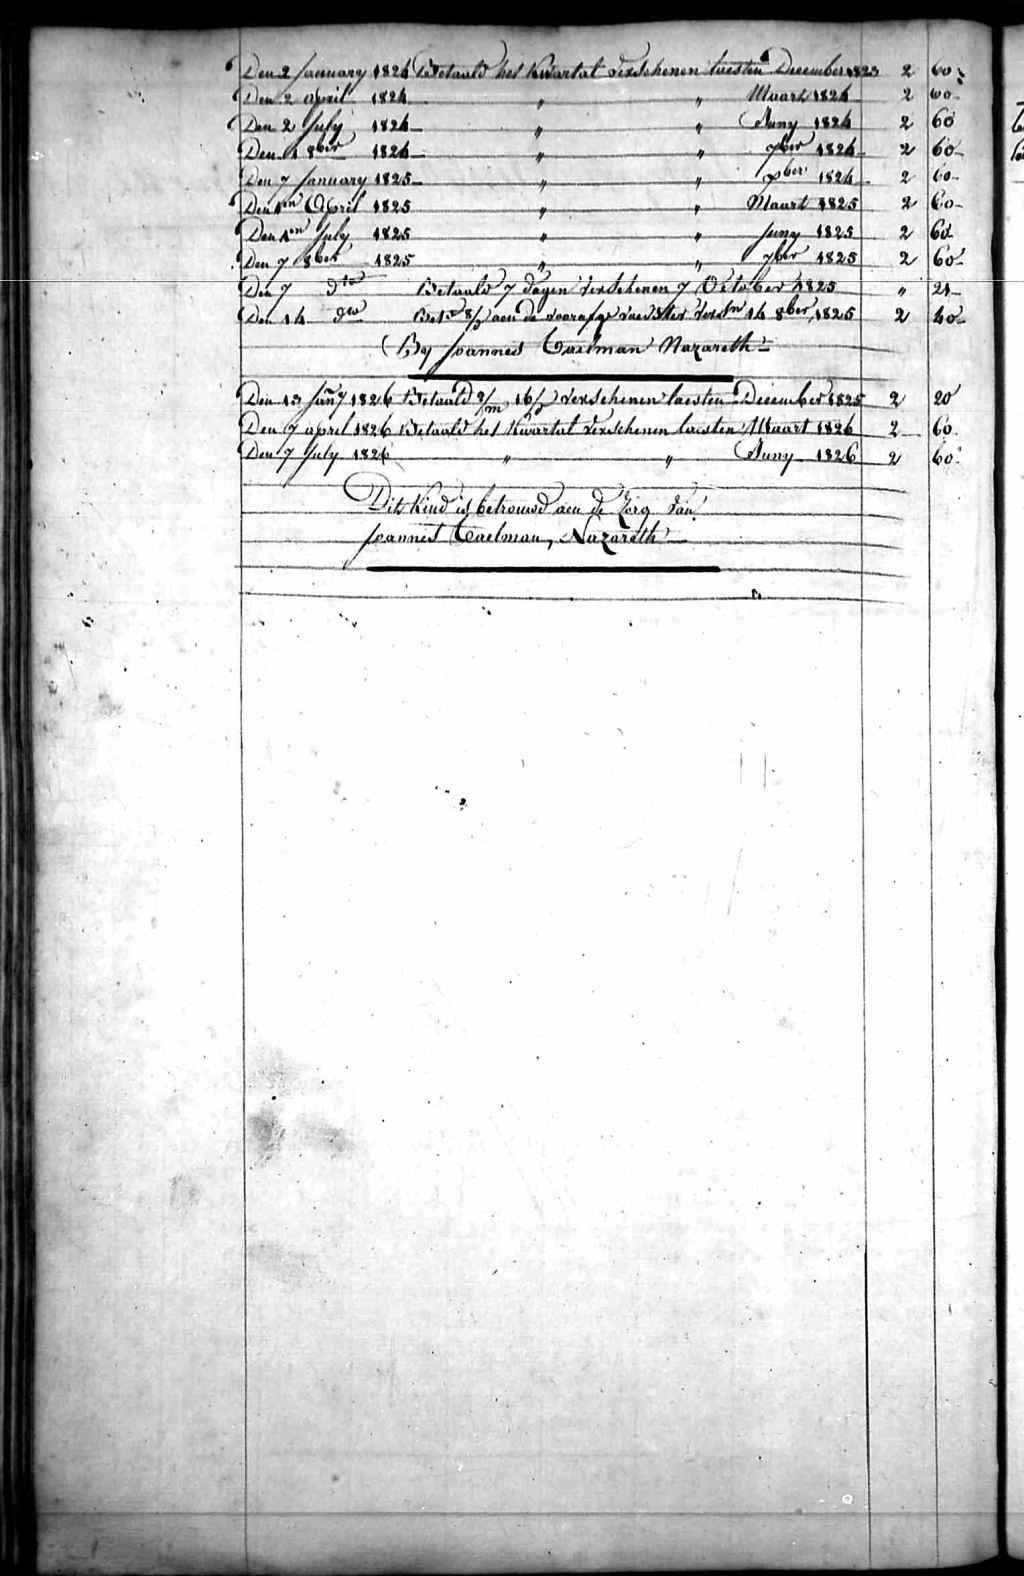 Den 2 January 1824 Betaald het Kwartal verschenen laesten December 1823 2 60
Den 2 april 1824 " " Maart 1824 2 60
Den 2 July 1824 " " Juny 1824 2 60
Den 1 8ber 1824 " " 7ber 1824 2 60
Den 7 January 1825 " " 1824 2 60
Den 1en April 1825 " " Maart 1825 2 60
Den 1en July 1825 " " Juny 1825 2 60
Den 7 8ber 1825 " " 7ber 1825 2 60
Den 7 dto Betaald 7 dagen verschenen 7 October 1825 "
Den 14 dto aen de 14 8ber 1825 2 40
By Joannes Taelman Nazareth
Den 13 Jany 1826 Betaald 2/m 16/d verschenen laesten December 1825 2 20
Den 7 april 1826 Betaald het Kwartal verschenen laesten Maart 1826 2 60
Den 7 July 1826 " " Juny 1826 2 60
Dit Kind is betrouwd aen de Zorg van
Joannes Taelman, Nazareth